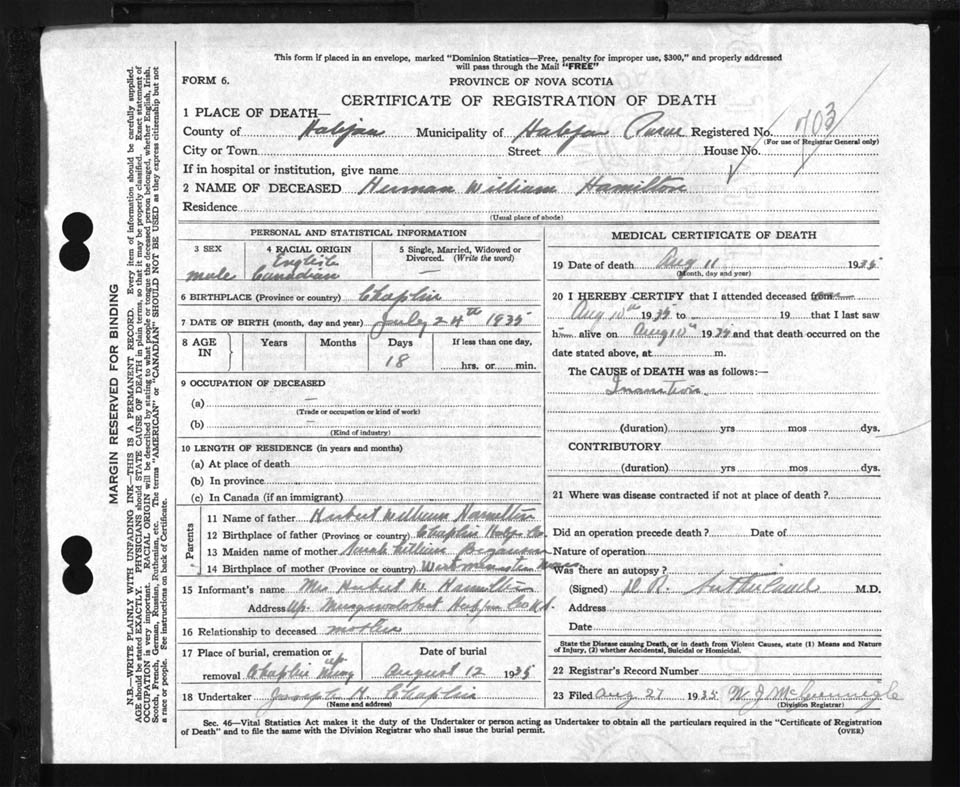 This form if placed in an envelope, marked "Dominion Statistics—Free, penalty for improper use, $300," and properly addressed
will pass through the Mail "FREE"
FORM 6.
PROVINCE OF NOVA SCOTIA
CERTIFICATE OF REGISTRATION OF DEATH
1 PLACE OF DEATH—
County of Halifax Municipality of Halifax Registered No. 703
(For use of Registrar General only)
City or Town Street House No.
If in hospital or institution, give name
2 NAME OF DECEASED Herman William Hamilton
Residence
(Usual place of abode)
PERSONAL AND STATISTICAL INFORMATION
3 SEX
male
4 RACIAL ORIGIN
English
Canadian
5 Single, Married, Widowed or
Divorced. (Write the word)
—
6 BIRTHPLACE (Province or country) Chaplin
7 DATE OF BIRTH (month, day and year) July 24th 1935
8 AGE
IN
Years Months Days If less than one day,
18
hrs. or min.
9 OCCUPATION OF DECEASED
(a) —
(Trade or occupation or kind of work)
(b) —
(Kind of industry)
10 LENGTH OF RESIDENCE (in years and months)
(a) At place of death
(b) In province
(c) In Canada (if an immigrant)
Parents
11 Name of father Herbert William Hamilton
12 Birthplace of father (Province or country) Chaplin Halfx Co.
13 Maiden name of mother Sarah Lillian
14 Birthplace of mother (Province or country)
15 Informant's name Mrs Herbert W. Hamilton
Address Up. Musquodoboit Halifax Co N.S.
16 Relationship to deceased mother
17 Place of burial, cremation or
removal Chaplin
Date of burial
August 12 1935
18 Undertaker Joseph H. Chaplin
(Name and address)
MEDICAL CERTIFICATE OF DEATH
19 Date of death Aug 11 1935
(Month, day and year)
20 I HEREBY CERTIFY that I attended deceased from
Aug 10th 1935 to 19 that I last saw
h alive on Aug 10th 1935 and that death occurred on the
date stated above, at m.
The CAUSE of DEATH was as follows:—
Inanition.
(duration) yrs mos dys.
CONTRIBUTORY
(duration) yrs mos dys.
21 Where was disease contracted if not at place of death?
Did an operation precede death? Date of
Nature of operation
Was there an autopsy?
(Signed) D. R. Sutherland M.D.
Address
Date
State the Disease causing Death, or in death from Violent Causes, state (1) Means and Nature
of Injury, (2) whether Accidental, Suicidal or Homicidal.
22 Registrar's Record Number
23 Filed Aug 27 1935 W. J. McGunnigle
(Division Registrar)
Sec. 46—Vital Statistics Act makes it the duty of the Undertaker or person acting as Undertaker to obtain all the particulars required in the "Certificate of Registration
of Death" and to file the same with the Division Registrar who shall issue the burial permit. (OVER)
MARGIN RESERVED FOR BINDING
N.B.—WRITE PLAINLY WITH UNFADING INK—THIS IS A PERMANENT RECORD. Every item of information should be carefully supplied.
AGE should be stated EXACTLY. PHYSICIANS should STATE CAUSE OF DEATH in plain terms, so that it may be properly classified. Exact statement of
OCCUPATION is very important. RACIAL ORIGIN will be described by stating to what people or tongue the deceased person belonged, whether English, Irish,
Scotch, French, German, Russian, Ruthenian, etc. The terms "AMERICAN" or "CANADIAN" SHOULD NOT BE USED as they express citizenship but not
a race or people. See instructions on back of Certificate.